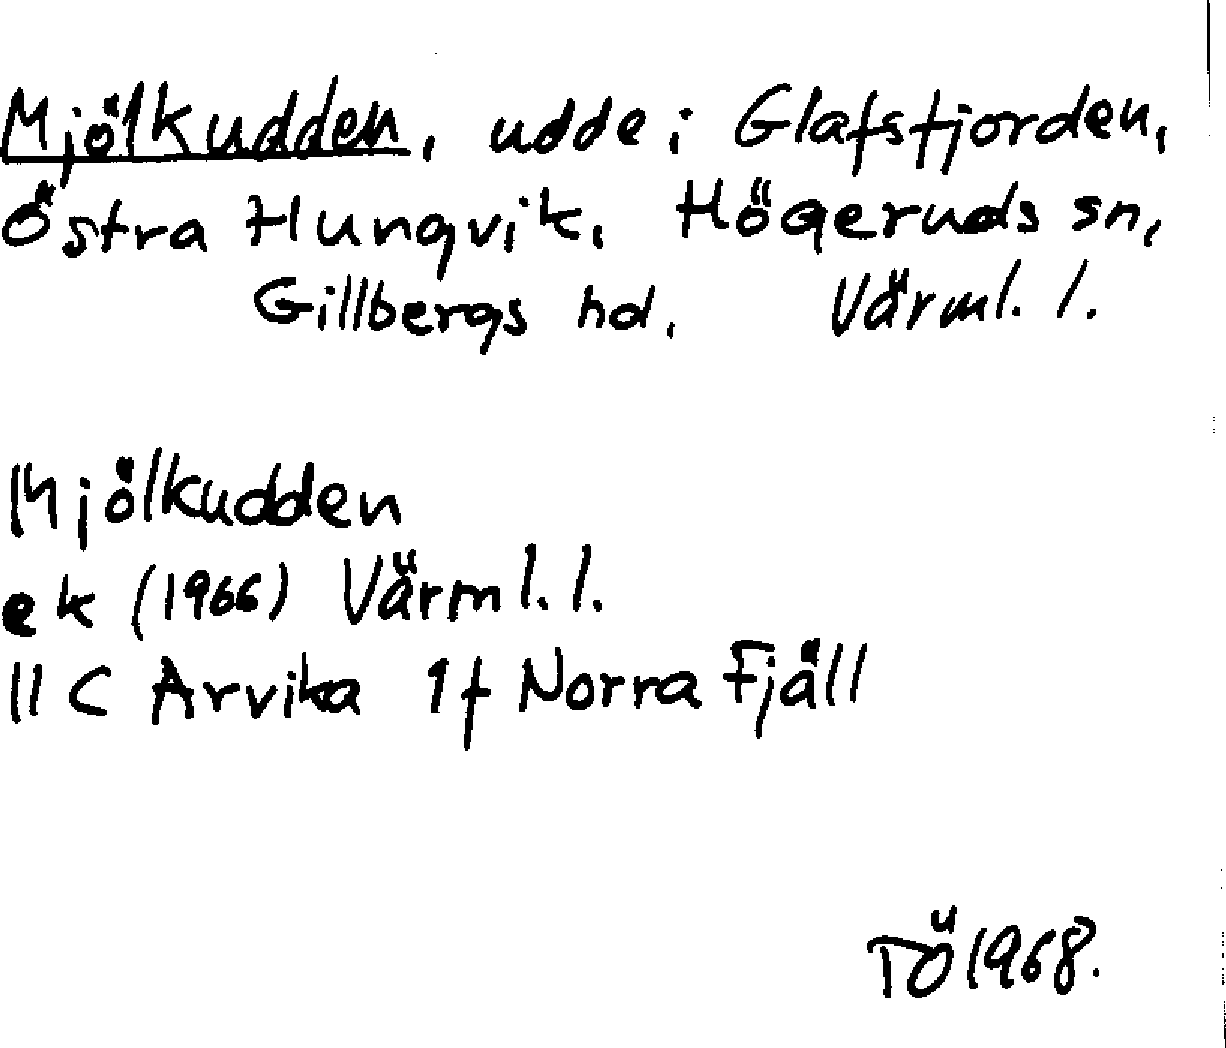 Mjölkudden, udde i Glafsfjorden,
Östra Hungvik, Högeruds sn,
Gillbergs hd. Värml. l.
Mjölkudden
ek (1966) Värml. l.
11 C Arvika 1f Norra Fjäll
TÖ 1968.